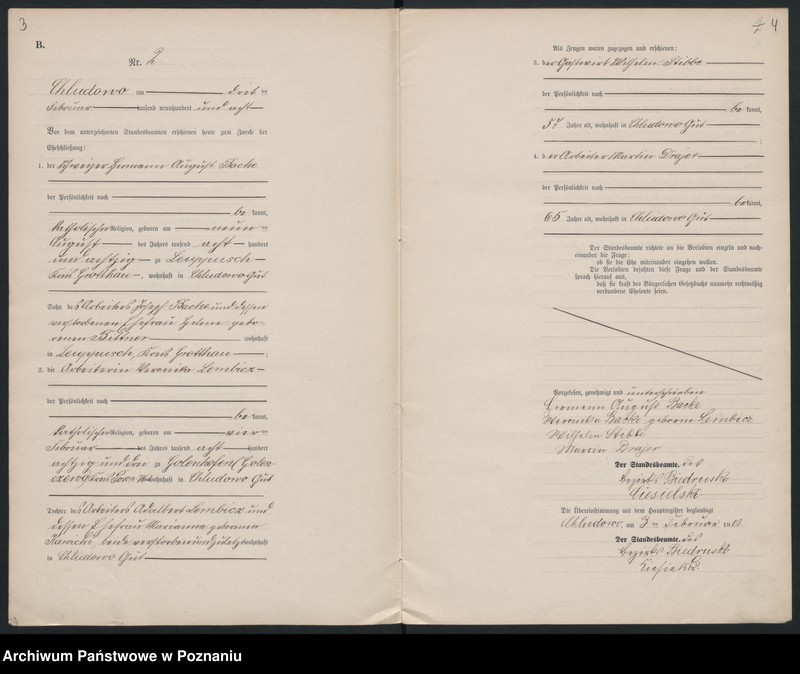 3
B.
Nr. 2
Chludowo am drei ten
Februar tausend neunhundert und acht
Vor dem unterzeichneten Standesbeamten erschienen heute zum Zwecke der
Eheschließung:
1. der Schweizer Hermann August Backe
der Persönlichkeit nach
be kannt,
katholischer Religion, geboren am neun ten
August des Jahres tausend acht hundert
und achtzig zu Leuppusch
Kreis Grottkau, wohnhaft in Chludowo Gut
Sohn des Arbeiters Josef Backe und dessen
verstorbenen Ehefrau Helene gebo-
renen Bittner wohnhaft
in Leuppusch, Kreis Grottkau ;
2. die Arbeiterin Veronika Lembicz
der Persönlichkeit nach
be kannt,
katholischer Religion, geboren am vier ten
Februar des Jahres tausend acht hundert
achtzig und drei zu Golenhofen (Golen-
czewo) Kreis Posen West wohnhaft in Chludowo Gut
Tochter des Arbeiters Adelbert Lembicz und
dessen Ehefrau Marianna geborenen
beide verstorben und zuletzt wohnhaft
in Chludowo Gut
4
Als Zeugen waren zugezogen und erschienen:
3. der Gastwirt Wilhelm Stibbe
der Persönlichkeit nach
be kannt,
57 Jahre alt, wohnhaft in Chludowo Gut ;
4. der Arbeiter Martin Drajer
der Persönlichkeit nach
be kannt,
65 Jahre alt, wohnhaft in Chludowo Gut
Der Standesbeamte richtete an die Verlobten einzeln und nach-
einander die Frage:
ob sie die Ehe miteinander eingehen wollen.
Die Verlobten bejahten diese Frage und der Standesbeamte
sprach hierauf aus,
daß sie kraft des Bürgerlichen Gesetzbuchs nunmehr rechtmäßig
verbundene Eheleute seien.
Vorgelesen, genehmigt und unterschrieben
Hermann August Backe
Weronika Backe geborene Lembicz
Wilhelm Stibbe
Marcin Drajer
Der Standesbeamte. des
Bezirks Biedrusko
Ciesielski.
Die Übereinstimmung mit dem Hauptregister beglaubigt
Chludowo, am 3 ten Februar 1908.
Der Standesbeamte. des
Bezirks Biedrusko
Ciesielski.
Archiwum Państwowe w Poznaniu